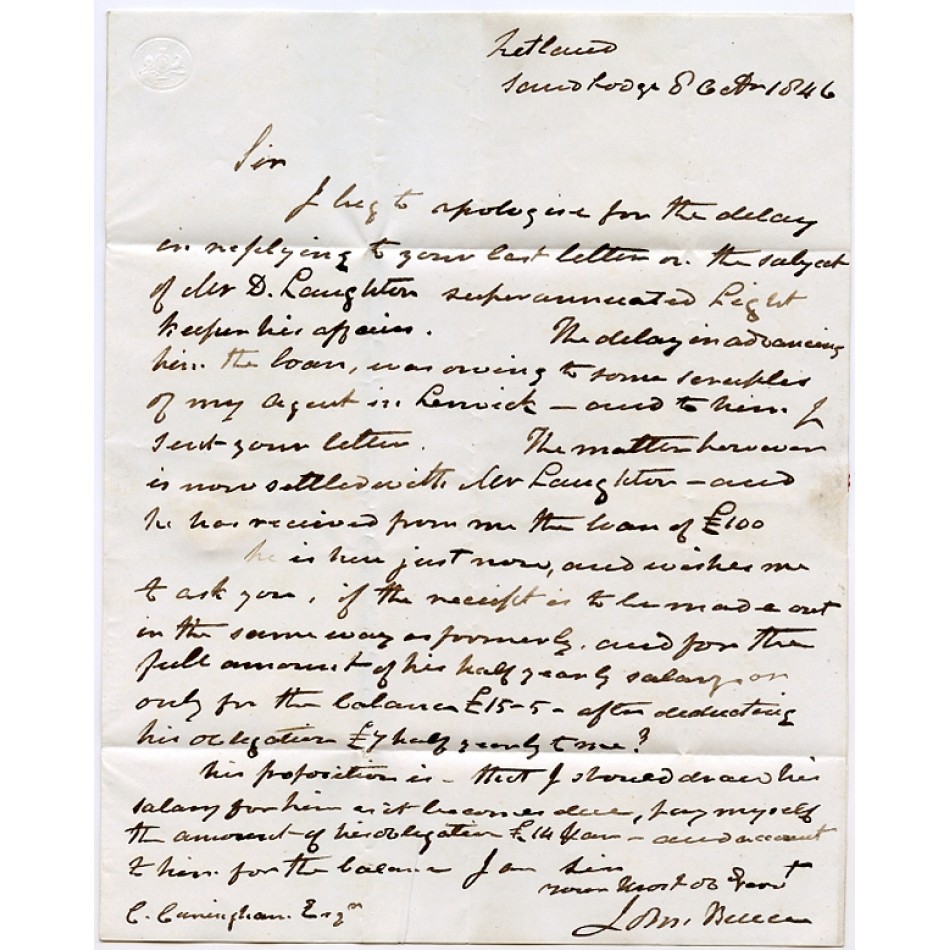 Zetland
Sand Lodge 8 Octr 1846
Sir
I beg to apologise for the delay
in replying to your last letter on the subject
of Mr D. Laughton superannuated Light
keeper his affairs. The delay in advancing
him the loan, was owing to some scruples
of my agent in Lerwick – and to him I
sent your letter. The matter however
is now settled with Mr Laughton – and
he has received from me the loan of £100
he is here just now, and wishes me
to ask you, if the receipt is to be made out
in the same way as formerly, and for the
full amount of his half yearly salary or
only for the balance £15-5- after deducting
his obligation £7 half yearly to me?
his proposition is – that I should draw his
salary for him as it becomes due, pay myself
the amount of his obligation £14 Year – and account
to him for the balance I am Sir
your most ob Servt
John Bruce
C. Cuningham Esqr